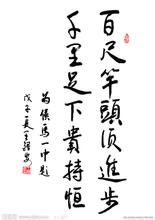 百尺竿頭須進步
千里足下貴持恒
為侯馬一中題
戊子夏